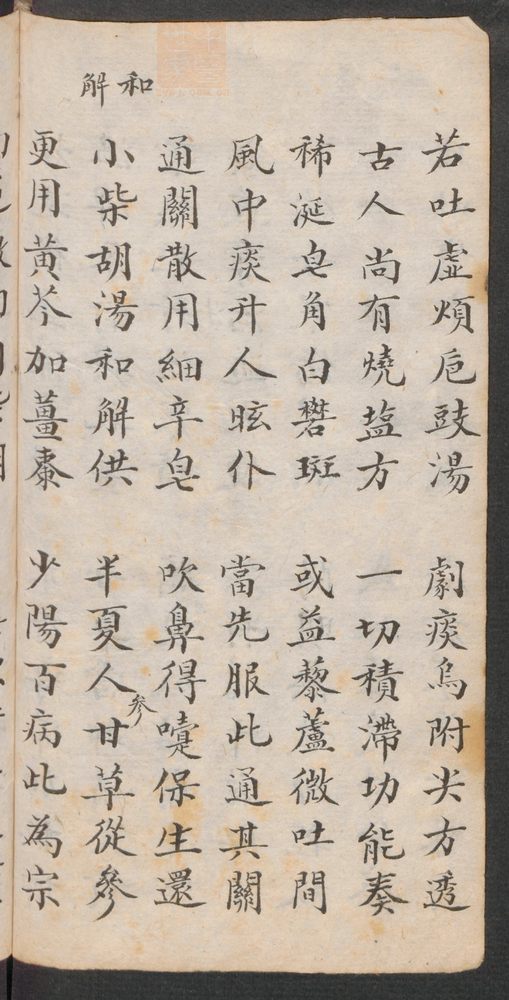 若吐虛煩巵豉湯　劇痰烏附尖方透
古人尚有燒塩方　一切積滯功能奏
稀涎皂角白礬斑　或益藜蘆微吐間
風中痰升人眩仆　當先服此通其關
通關散用細辛皂　吹鼻得嚏保生還
和解
小柴胡湯和解供　半夏人甘草從參
參
更用黃芩加薑棗　少陽百病此為宗